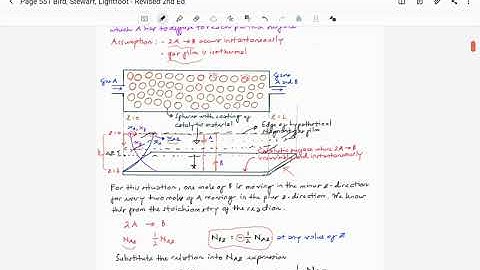 Page 551 Bird, Stewart, Lightfoot - Revised 2nd Ed
which A has to diffuse to reach
Assumption: - 2A → B occurs instantaneously
- gas film is isothermal
Gas A
Gases
A and B
z=0
z=L
Spheres with coating of
catalytic material
Edge of hypothetical
stagnant gas film
Catalytic surface where 2A → B
instantaneously
For this situation, one mole of B is moving in the minus z-direction
for every two moles of A moving in the plus z-direction. We know
this from the stoichiometry of the reaction.
2A → B
N_Az ½ N_Az
N_Bz = -½ N_Az at any value of z
Substitute the relation into N_Az expression